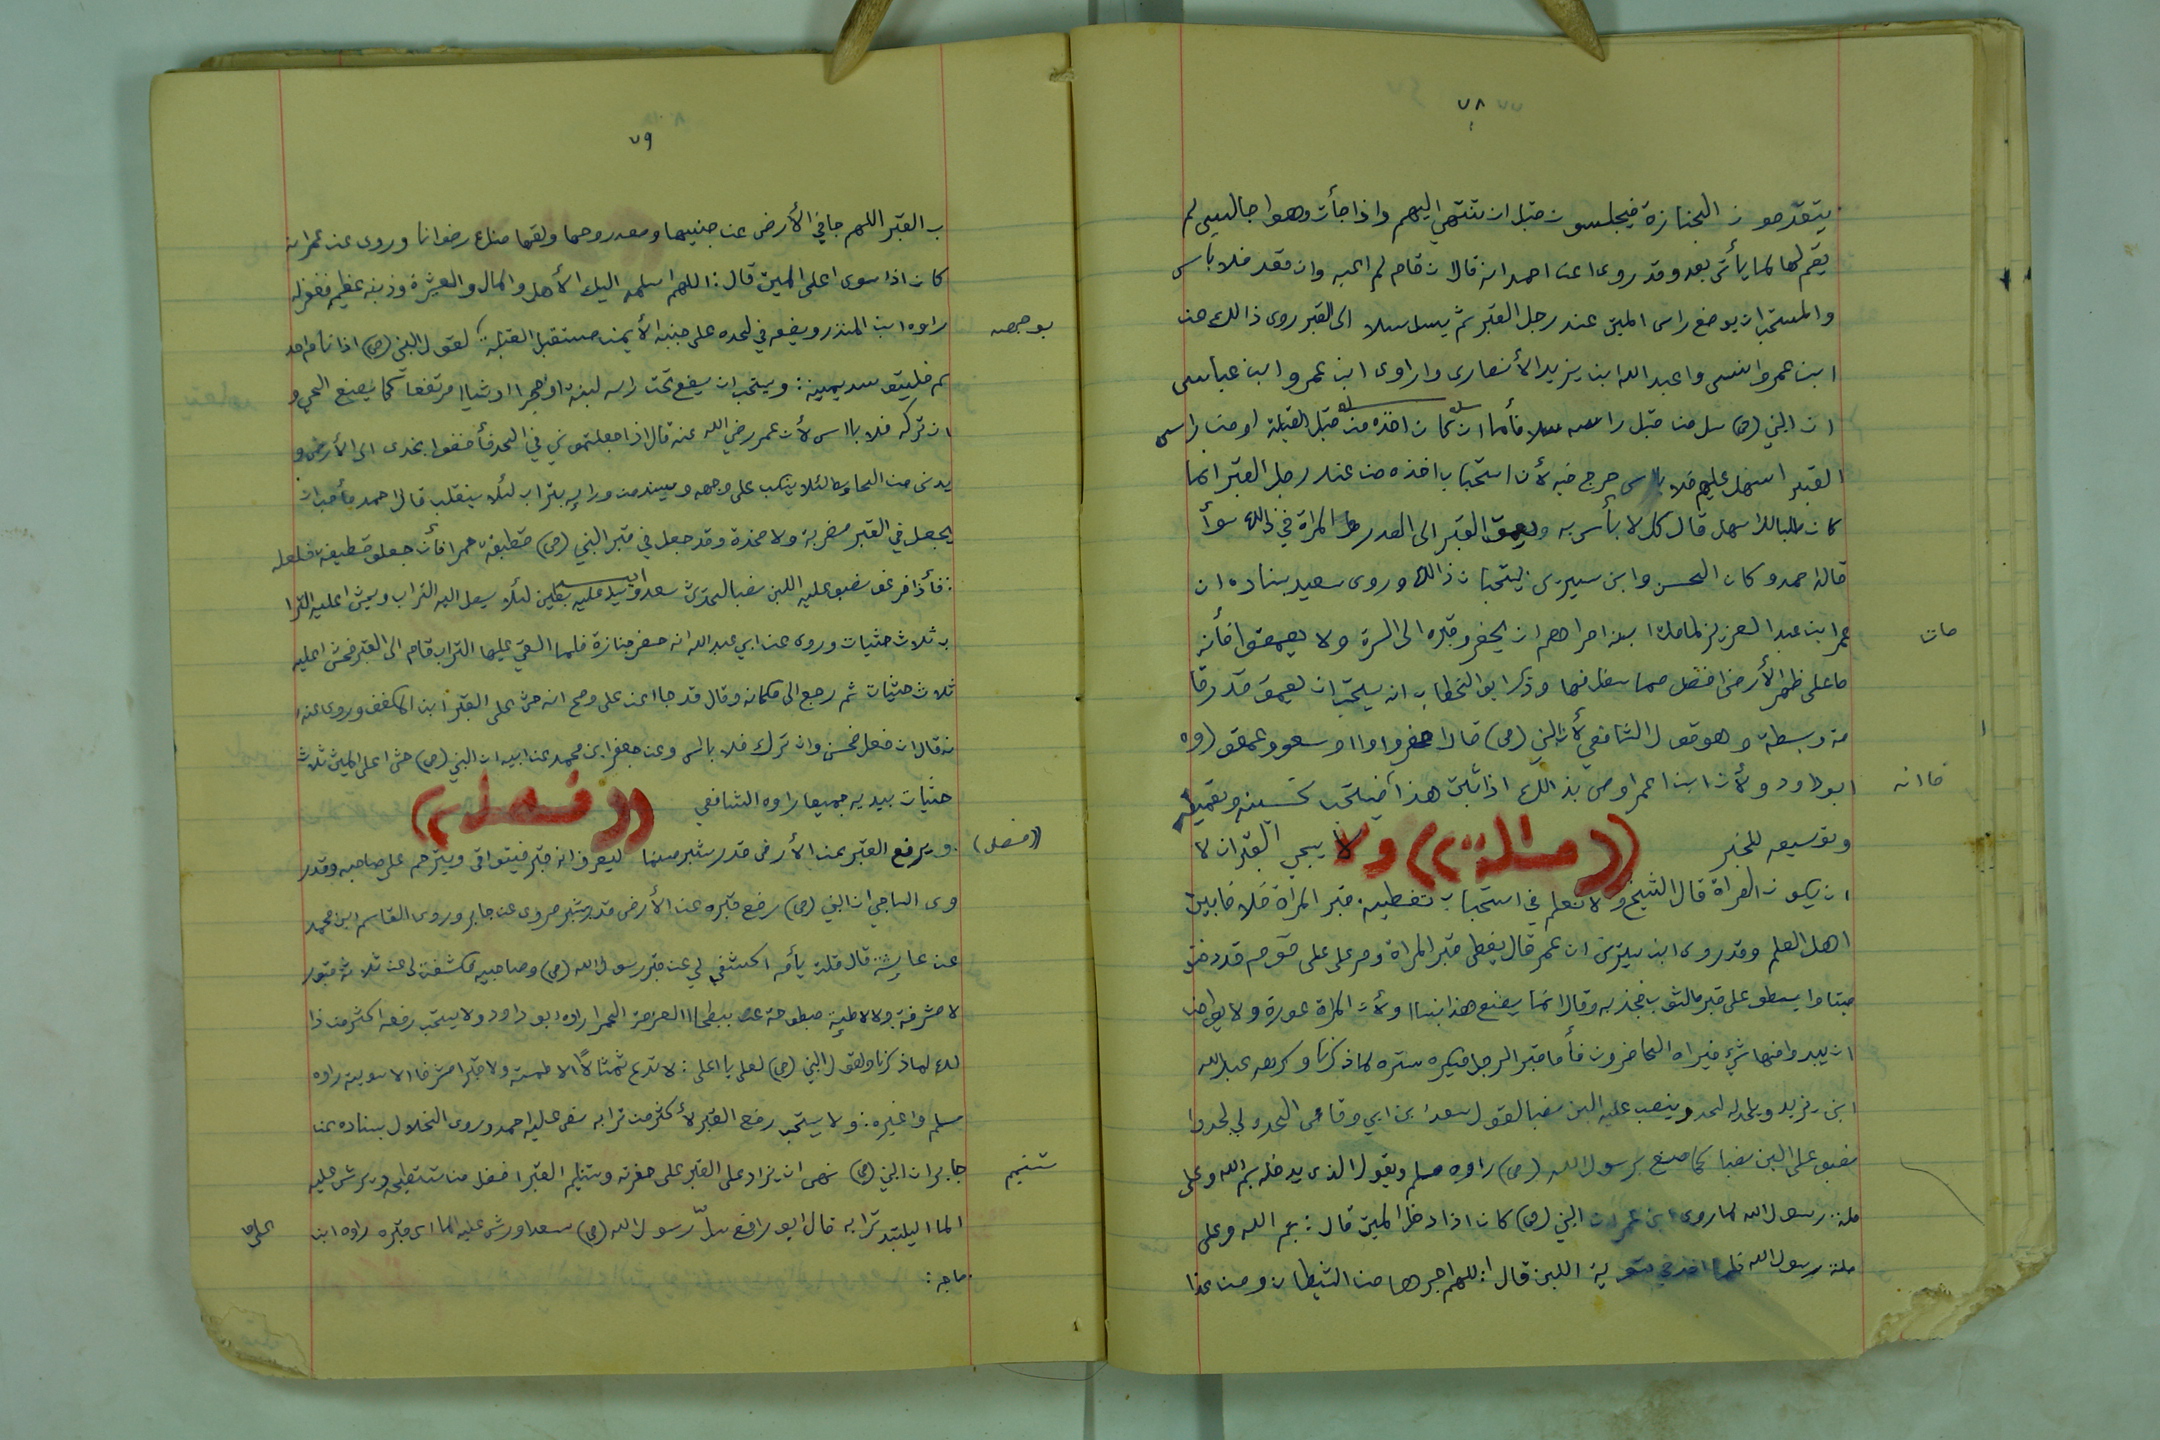 ٧٨
يتقدمون الجنازة فيجلسون قبل ان تنتهي اليهم واذا جأت وهوا جالسين لم
يقم لها لما يأتي بعد وقد روى اعن احمد انه قال ان قام لم اعبه وان قعد فلا باس
والمستحب ان يوضع راس الميت عند رجل القبر ثم يسل سلا الى القبر روى ذالك عن
ابن عمر وانس وا عبد الله ابن يزيد الأنصارى واراوى ابن عمر وابن عباس
ان النبي (ص) سل من قبل راسه سلا فأما ان كان اخذه من قبل القبلة او من راس
القبر اسهل عليهم فلا باس حرج فيه لأن استحباب اخذه من عند رجل القبر انما
كان طلبا للاسهل قال كل لا بأس به ويعمق القبر الى الصدر والمرأة في ذالك سوأ
قاله احمد وكان الحسن وابن سيرين يستحبان ذالك وروى سعيد بسناده ان
عمر ابن عبد العزيز لما مات ابنه امرهم ان يحفرو قبره الى السرة ولا يعمقوا فأن
مات
ما على ظهر الأرض افضل مما سفل منها وذكر ابو الخطاب انه يستحب ان يعمق قدر قا
مة وبسطة وهو قول الشافعي لأن النبي (ص) قال احفروا وا وسعو وعمقو (وه
ابو داود ولأن ابن اعمر اوصى بذالك اذا ثبت هذا فيستحب تحسينه وتعميقه
فاانه
وتوسيعه للخبر ((مسألة)) ولا يجب القبر ان لا
ان يكون الفراة قال الشيخ ولا نعلم في استحباب تغطية قبر المرأة خلافا بين
اهل العلم وقد روى ابن سيرين ان عمر قال يغطى قبر المراة ومر على على قوم قد دفنو
ميتا وا بسطو على قبره الثوب فجذبه وقال انما يصنع هذا بنسا اولأن المراة عورة ولا يؤمن
ان يبدوا منها شيء فيراه الحاضرون فأما قبر الرجل فيكره ستره لما ذكرنا وكرهه عبد الله
ابن يزيد ويلحد له لحد وينصب عليه البن نصبا لقول سعد ابن ابي وقاص الحدو لي لحدوا
نصبو على البن نصبا كما صنع برسول الله (ص) راوه مسلم ويقول الذى يدخله بسم الله وعلى
ملة رسول الله لما روى ابن عمر ان النبي (ص) كان اذا ادخل الميت قال : بسم الله وعلى
ملة رسول الله فلما اخذ في تسوية اللبن قال اللهم اجرها من الشيطان ومن عذا
٧٩
ب القبر اللهم جافي الأرض عن جنبيها وصعد روحها ولقها مناع رضوانا وروى عن عمر انه
كان اذا سوى اعلى الميت قال : اللهم اسلمه اليك الأهل والمال والعشرة وذنبه عظيم فغفرله
راوه ابن المنذر ويضعه في لحده على جنبه الأيمن مستقبل القبلة لقول النبي (ص) اذا نام احد
بوجهه
كم فليتوسد يمينه : ويستحب ان يضع تحت راسه لبنة او حجرا او شيا مرتفعا كما يصنع الحي و
ان تركه فلا باس لأن عمر رضي الله عنه قال اذا جعلتموني في اللحد فأفضوا بخدى الى الأرض و
يدنى من الحاوط لئلا ينكب على وجهه ويسند من ورايه بتراب لئلا ينقلب قال احمد ما احب ان
يجعل في القبر مضربة ولا مخدة وقد جعل في قبر النبي (ص) قطيفة حمرا فأن جعلو قطيفة فلعله
: فأذا فرغو نصبو عليه اللبن نصبا لحديث سعد ويسد عليه بطين لئلا يصل اليه التراب ويحثي اعليه الترا
ب ثلاث حثيات وروى عن ابي عبد الله انه حضر جنازة فلما القي عليها التراب قام الى القبر فحثى اعليه
ثلاث حثيات ثم رجع الى مكانه وقال قد جا اعن على وصح انه حثى على القبر ابن المكفف وروى عنه ا
نه قال ان فعل فحسن وان ترك فلا باس وعن جعفر ابن محمد عن ابيه ان النبي (ص) حثى اعلى الميت ثلاث
حثيات بيديه جميعا راوه الشافعي ((فصل))
ويرفع القبر عن الأرض قدر شبر مسنما ليعرف انه قبر فيتواقى ويترحم على صاحبه وقدر
((فصل)
وى الساجي ان النبي (ص) رفع قبره عن الأرض قدر شبر مروى عن جابر وروى القاسم ابن محمد
عن عايشة قال قلت يأمه اكشفي لي عن قبر رسول الله (ص) وصاحبيه فكشفت لى عن ثلاثة قبور
لا مشرفة ولا لاطية مبطوحة ببطحا العرصة الحمرا راوه ابو داود ولا يستحب رفعه اكثر من ذا
لك لما ذكرنا ولقول النبي (ص) لعلي يا اعلى : لا تدع تمثالا الا طمسته ولا قبرا مشرفا الا سويته راوه
مسلم وا غيره : ولا يستحب رفع القبر لأكثر من ترابه نص عليه احمد وروى الخلال بسناده عن
جابر ان النبي (ص) نهى ان يزاد على القبر على حفرته وتسنيم القبر افضل من تسطيحه ويرش عليه
تسنيم
الما اليلتبد ترابه قال ابو رافع سلّ رسول الله (ص) سعدا ورش عليه الما اى قبره راوه ابن
ماجه :